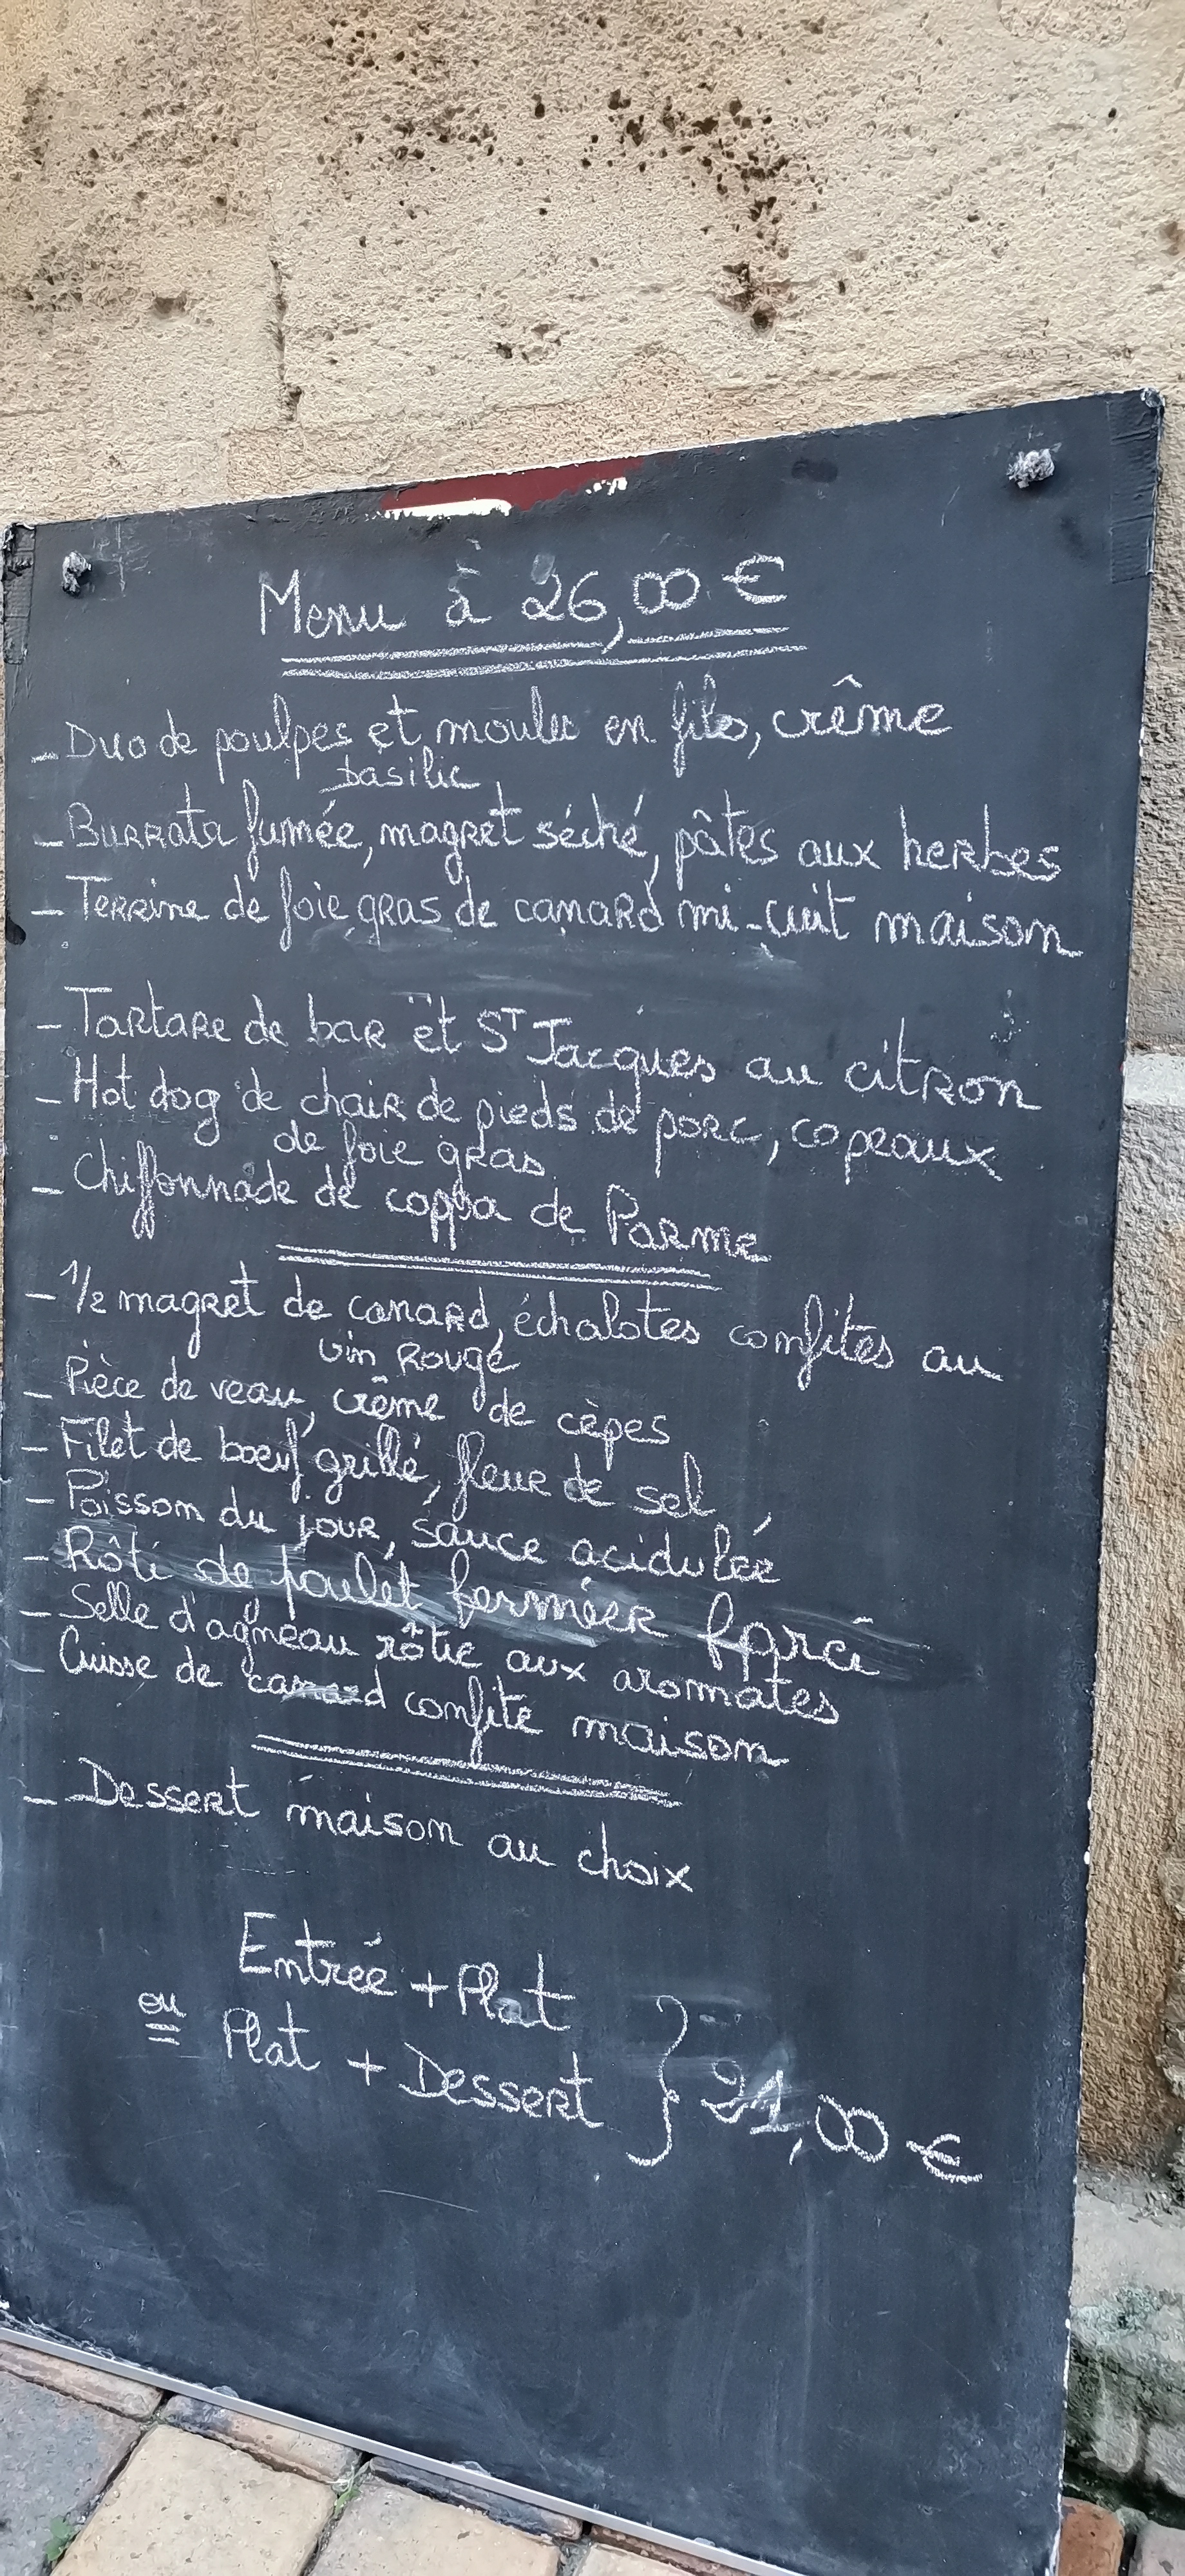 Menu à 26,00 €
- Duo de poulpes et moules en filo, crême
basilic
- Burrata fumée, magret séché, pâtes aux herbes
- Terrine de foie gras de canard mi-cuit maison
- Tartare de bar et ST Jacques au citron
- Hot dog de chair de pieds de porc, copeaux
de foie gras
- Chiffonnade de coppa de Parme
- 1/2 magret de canard, échalotes confites au
vin rouge
- Pièce de veau, crême de cèpes
- Filet de boeuf grillé, fleur de sel
- Poisson du jour, sauce acidulée
- Rôti de poulet fermier farci
- Selle d'agneau rôtie aux aromates
- Cuisse de canard confite maison
- Dessert maison au choix
Entrée + Plat
ou Plat + Dessert } 21,00 €